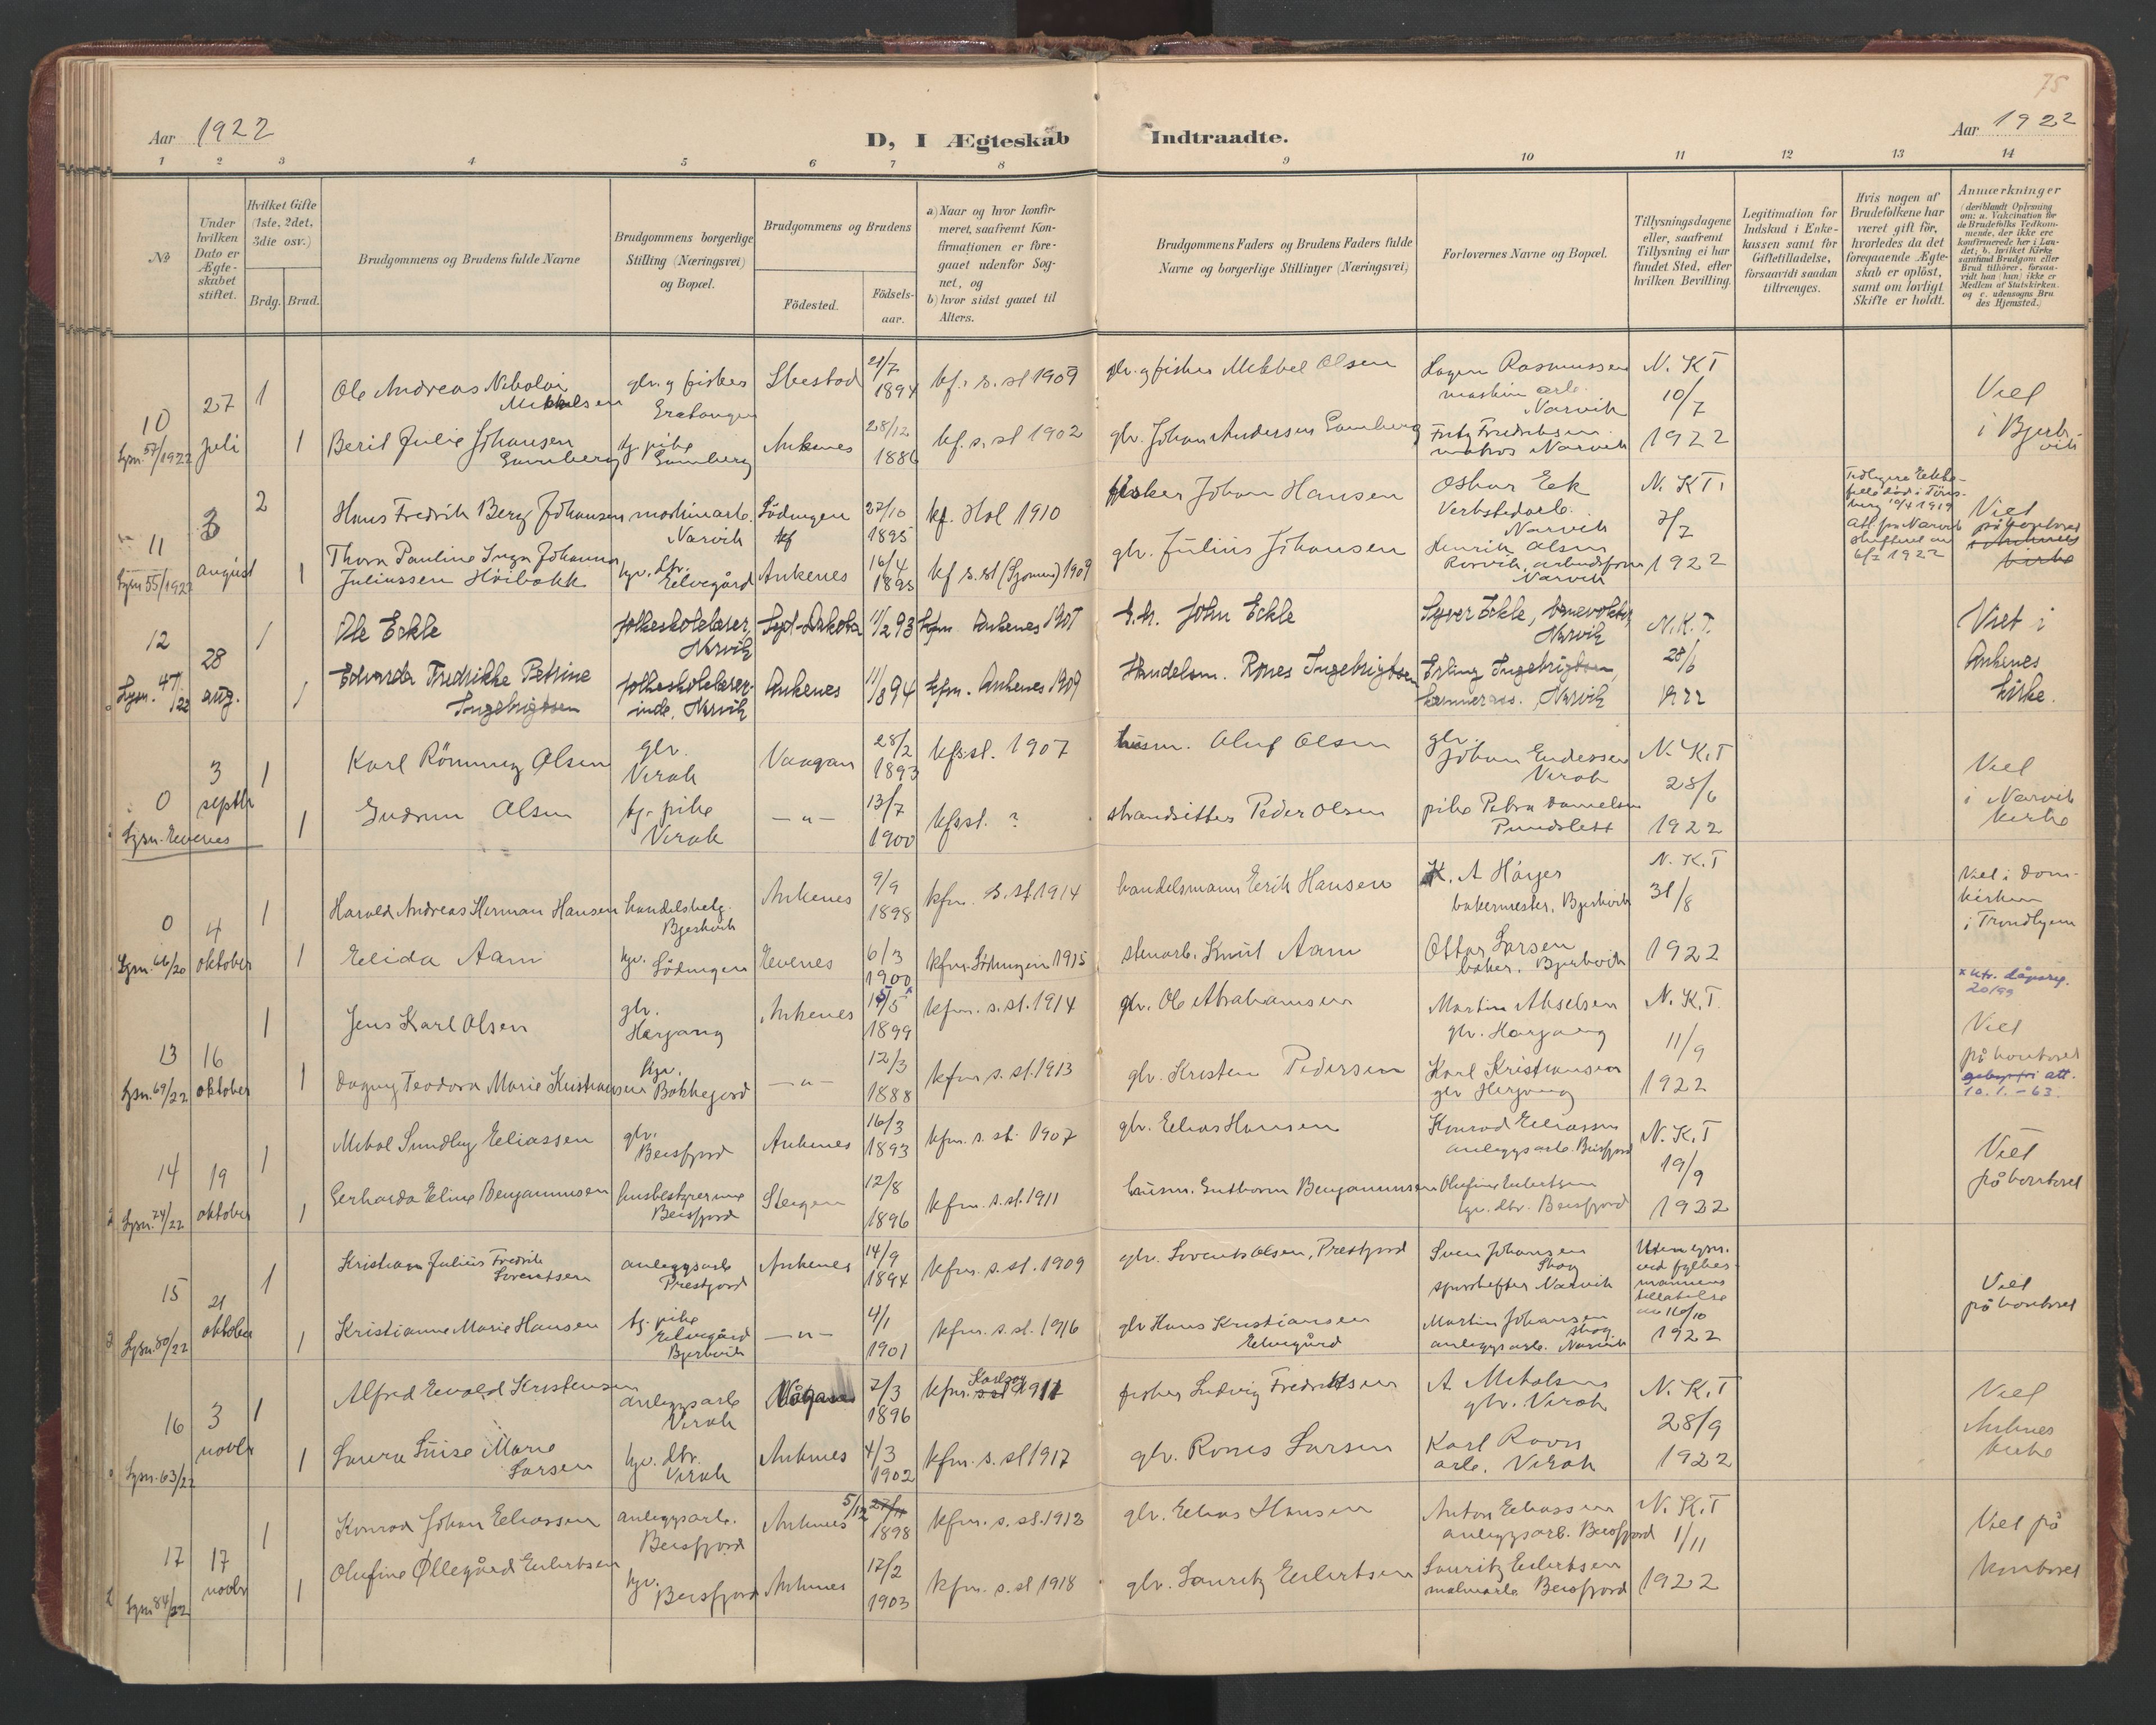 75
Aar 1922
D, I Ægteskab Indtraadte.
Aar 1922
1 2 3 4 5 6 7 8 9 10 11 12 13 14
No
Under hvilken Dato er Ægte-skabet stiftet.
Hvilket Gifte (1ste, 2det, 3die osv.)
Brdg. Brud.
Brudgommens og Brudens fulde Navne
Brudgommens borgerlige Stilling (Næringsvei) og Bopæl.
Brudgommens og Brudens
Födested.
Födsels-aar.
a) Naar og hvor konfir-meret, saafremt Kon-firmationen er fore-gaaet udenfor Sog-net, og
b) hvor sidst gaaet til Alters.
Brudgommens Faders og Brudens Faders fulde Navne og borgerlige Stillinger (Næringsvei)
Forlovernes Navne og Bopæl.
Tillysningsdagene eller, saafremt Tillysning ei har fundet Sted, efter hvilken Bevilling.
Legitimation for Indskud i Enke-kassen samt for Giftetilladelse, forsaavidt saadan tiltrænges.
Hvis nogen af Brudefolkene har været gift för, hvorledes da det foregaaende Ægte-skab er oplöst, samt om lovligt Skifte er holdt.
Anmærkninger
(deriblandt Oplysning om: a. Vakcination for de Brudefolks Vedkom-mende, der ikke ere konfirmerede her i Lan-det; b. hvilket Kirke-samfund Brudgom eller Brud tilhörer, forsaa-vidt han (hun) ikke er Medlem af Statskirken, og c. udensogns Bru-des Hjemsted.)
10
Lysn. 57/1922
27 juli
1
Ole Andreas Nikolai Mikkelsen
gbr. og fisker
Ibestad
21/7 1894
kf. s. st 1909
gbr. og fisker Mikkel Olsen
Rasmussen
maskin arb. Narvik
N. K T
10/7 1922
Viet i Bjerk-vik
1
Berit Julie Johansen
tj. pike
Ankenes
28/12 1886
kf. s. st 1902
gbr. Johan Andersen
Fritz Fredriksen
matros Narvik
11
Lysn 55/1922
3 august
2
Hans Fredrik Berg Johansen
maskinarb. Narvik
Lödingen
27/10 1895
kf. Hol 1910
fisker Johan Hansen
Oskar Eek
Verkstedarb. Narvik
N. K T.
7/7 1922
Viet på kontoret
Ankenes kirke
1
Thora Pauline Inga Johanna
Juliussen Höibakk
gbr. dtr. Elvegård
Ankenes
16/4 1895
kf s. st (Sjomen) 1909
gbr. Julius Johansen
Henrik Olsen
Narvik
12
Lysn. 47/22
28 aug.
1
Ole Eckle
folkeskolelærer, Narvik
Syd-Dakota
11/2 93
kfm. Ankenes 1907
John Eckle
Syver Eckle, banevokter, Narvik
N.K.T.
28/6 1922
Viet i Ankenes kirke.
1
Edvarda Fredrikke Petrine Ingebrigtsen
folkeskolelærer-inde, Narvik
Ankenes
11/8 94
kfm. Ankenes 1909
Handelsm. Rones Ingebrigtsen
Erling Ingebrigtsen,
Narvik
0
Lysn. Evenes
3 septbr
1
Karl Rönning Olsen
gbr. Virak
Vaagan
28/2 1893
kfsst. 1907
husm. Oluf Olsen
gbr. Johan Endressen
Virak
N. K.T
28/6 1922
Viet i Narvik kirke
1
Gudrun Olsen
tj. pike Virak
— " —
13/7 1900
kfsst. ?
strandsitter Peder Olsen
pike Petra Danielsen
Pundslett
0
Lysn. 66/20
4 oktober
1
Harald Andreas Herman Hansen
handelsbetj. Bjerkvik
Ankenes
9/9 1898
kfm. s. st. 1914
handelsmann Eerik Hansen
K. A Harjer
bakermester, Bjerkvik
N. K.T
31/8 1922
Viet i Dom-kirken i Trondhjem
1
Elida Aam
hjv. Lödingen
Evenes
6/3 1900
kfm. Lödingen 1915
stenarb. Knut Aam
Ottar Larsen
baker. Bjerkvik
13
Lysn. 69/22
16 oktober
1
Jens Karl Olsen
gbr. Herjang
Ankenes
15/5 1899
kfm. s. st. 1914
gbr. Ole Abrahamsen
Martin Akselsen
gbr. Herjang
N. K.T.
11/9 1922
x utr. dåpsreg. 20/99
Viet på kontoret
att. 10.1.-63.
1
Dagny Teodora Marie Kristiansen
hjv. Bokkejord
— " —
12/3 1888
kfm s. st. 1913
gbr. Kristen Pedersen
Karl Kristiansen
gbr Herjang
14
Lysn. 74/22
19 oktober
1
Mikal Sundby Eliassen
gbr. Beisfjord
Ankenes
16/3 1893
kfm. s. st. 1907
gbr. Elias Hansen
Konrad Eliassen
anleggsarb. Beisfjord
N. K. T
19/9 1922
Viet på kontoret
1
Gerharda Eline Benjaminsen
husbestyrerinne Beisfjord
Steigen
12/8 1896
kfm. s. st. 1911
husm. Guttorm Benjaminsen
Olufine Eilertsen
hjv. dtr. Beisfjord
15
Lysn. 80/22
21 oktober
1
Kristian Julius Fredrik Lorentsen
anleggsarb Prestjord
Ankenes
14/9 1894
kfm. s. st. 1909
gbr. Lorents Olsen, Prestjord
Sven Johansen Skog
Narvik
Uten lysn. ved fylkes-mannens tillatelse av 16/10 1922
Viet på kontoret
1
Kristianne Marie Hansen
tj. pike Elvegård Bjerkvik
— " —
4/1 1901
kfm. s. st. 1916
gbr Hans Kristiansen Elvegård
Martin Johansen Skog
anleggsarb. Narvik
16
Lysn. 63/22
3 novbr
1
Alfred Evald Kristensen
anleggsarb Virak
7/3 1896
kfm. Karlsøy 1911
fisker Ludvig Fredriksen
A Mikalsen
gbr. Virak
N. K. T
28/9 1922
Viet Ankenes kirke
1
Laura Luise Marie Larsen
hjv. dtr. Virak
Ankenes
4/3 1902
kfm. s. st 1917
gbr. Rones Larsen
Karl Ravn
arb. Virak
17
Lysn 84/22
17 novbr
1
Konrad Johan Eliassen
anleggsarb. Beisfjord
Ankenes
5/12 1898
kfm. s. st. 1912
gbr. Elias Hansen
Anton Eliassen
anleggsarb. Beisfjord
N. K.T
1/11 1922
Viet på kontoret
1
Olufine Øllegård Eilertsen
hjv. Beisfjord
Ankenes
17/2 1903
kfm. s. st 1918
gbr. Lauritz Eilertsen
Lauritz Eilertsen
malmarb. Beisfjord